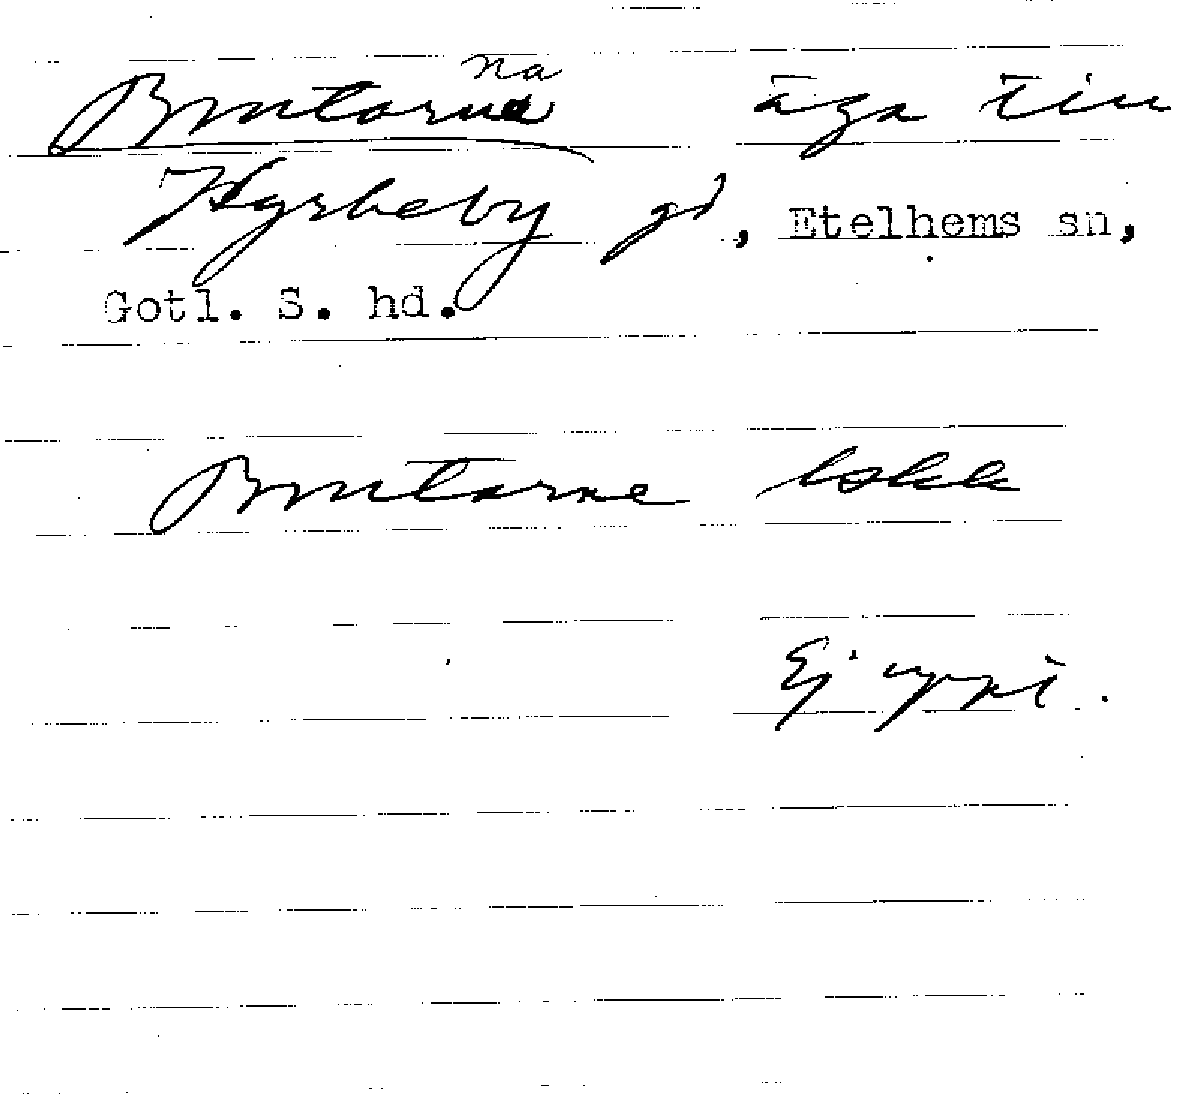 na
Brutarna äga till
Hyrkeby gd, Etelhems sn,
Gotl. S. hd.
Brutarne
Ej uppt.